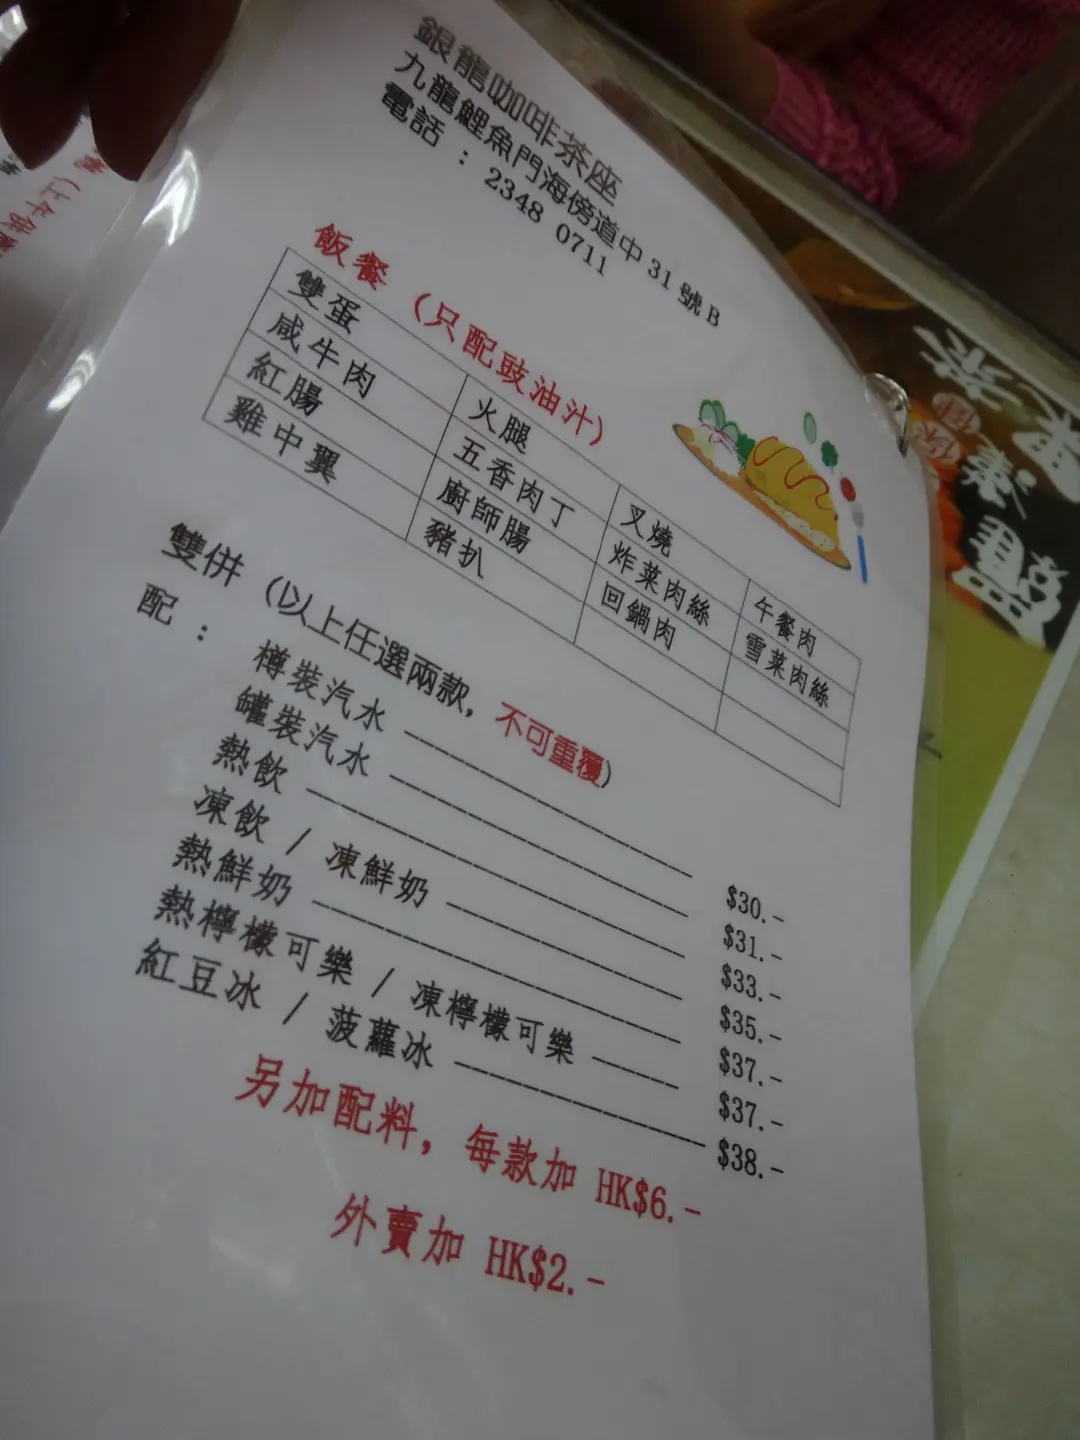 銀龍咖啡茶座
九龍鯉魚門海傍道中 31 號 B
電話 : 2348 0711
飯餐 (只配豉油汁)
雙蛋 火腿 叉燒 午餐肉
咸牛肉 五香肉丁 炸菜肉絲 雪菜肉絲
紅腸 廚師腸 回鍋肉
雞中翼 豬扒
雙併 (以上任選兩款, 不可重覆)
配 :
樽裝汽水 $30.-
罐裝汽水 $31.-
熱飲 $33.-
凍飲 / 凍鮮奶 $35.-
熱鮮奶 $37.-
熱檸檬可樂 / 凍檸檬可樂 $37.-
紅豆冰 / 菠蘿冰 $38.-
另加配料, 每款加 HK$6.-
外賣加 HK$2.-